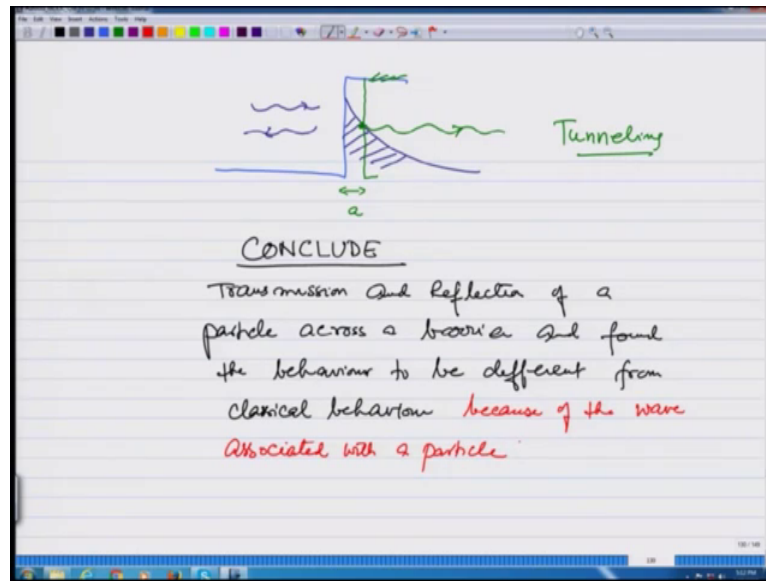 File Edit View Insert Actions Tools Help
Tunneling
a
CONCLUDE
Transmission and Reflection of a
particle across a barrier and found
the behaviour to be different from
classical behaviour because of the wave
associated with a particle